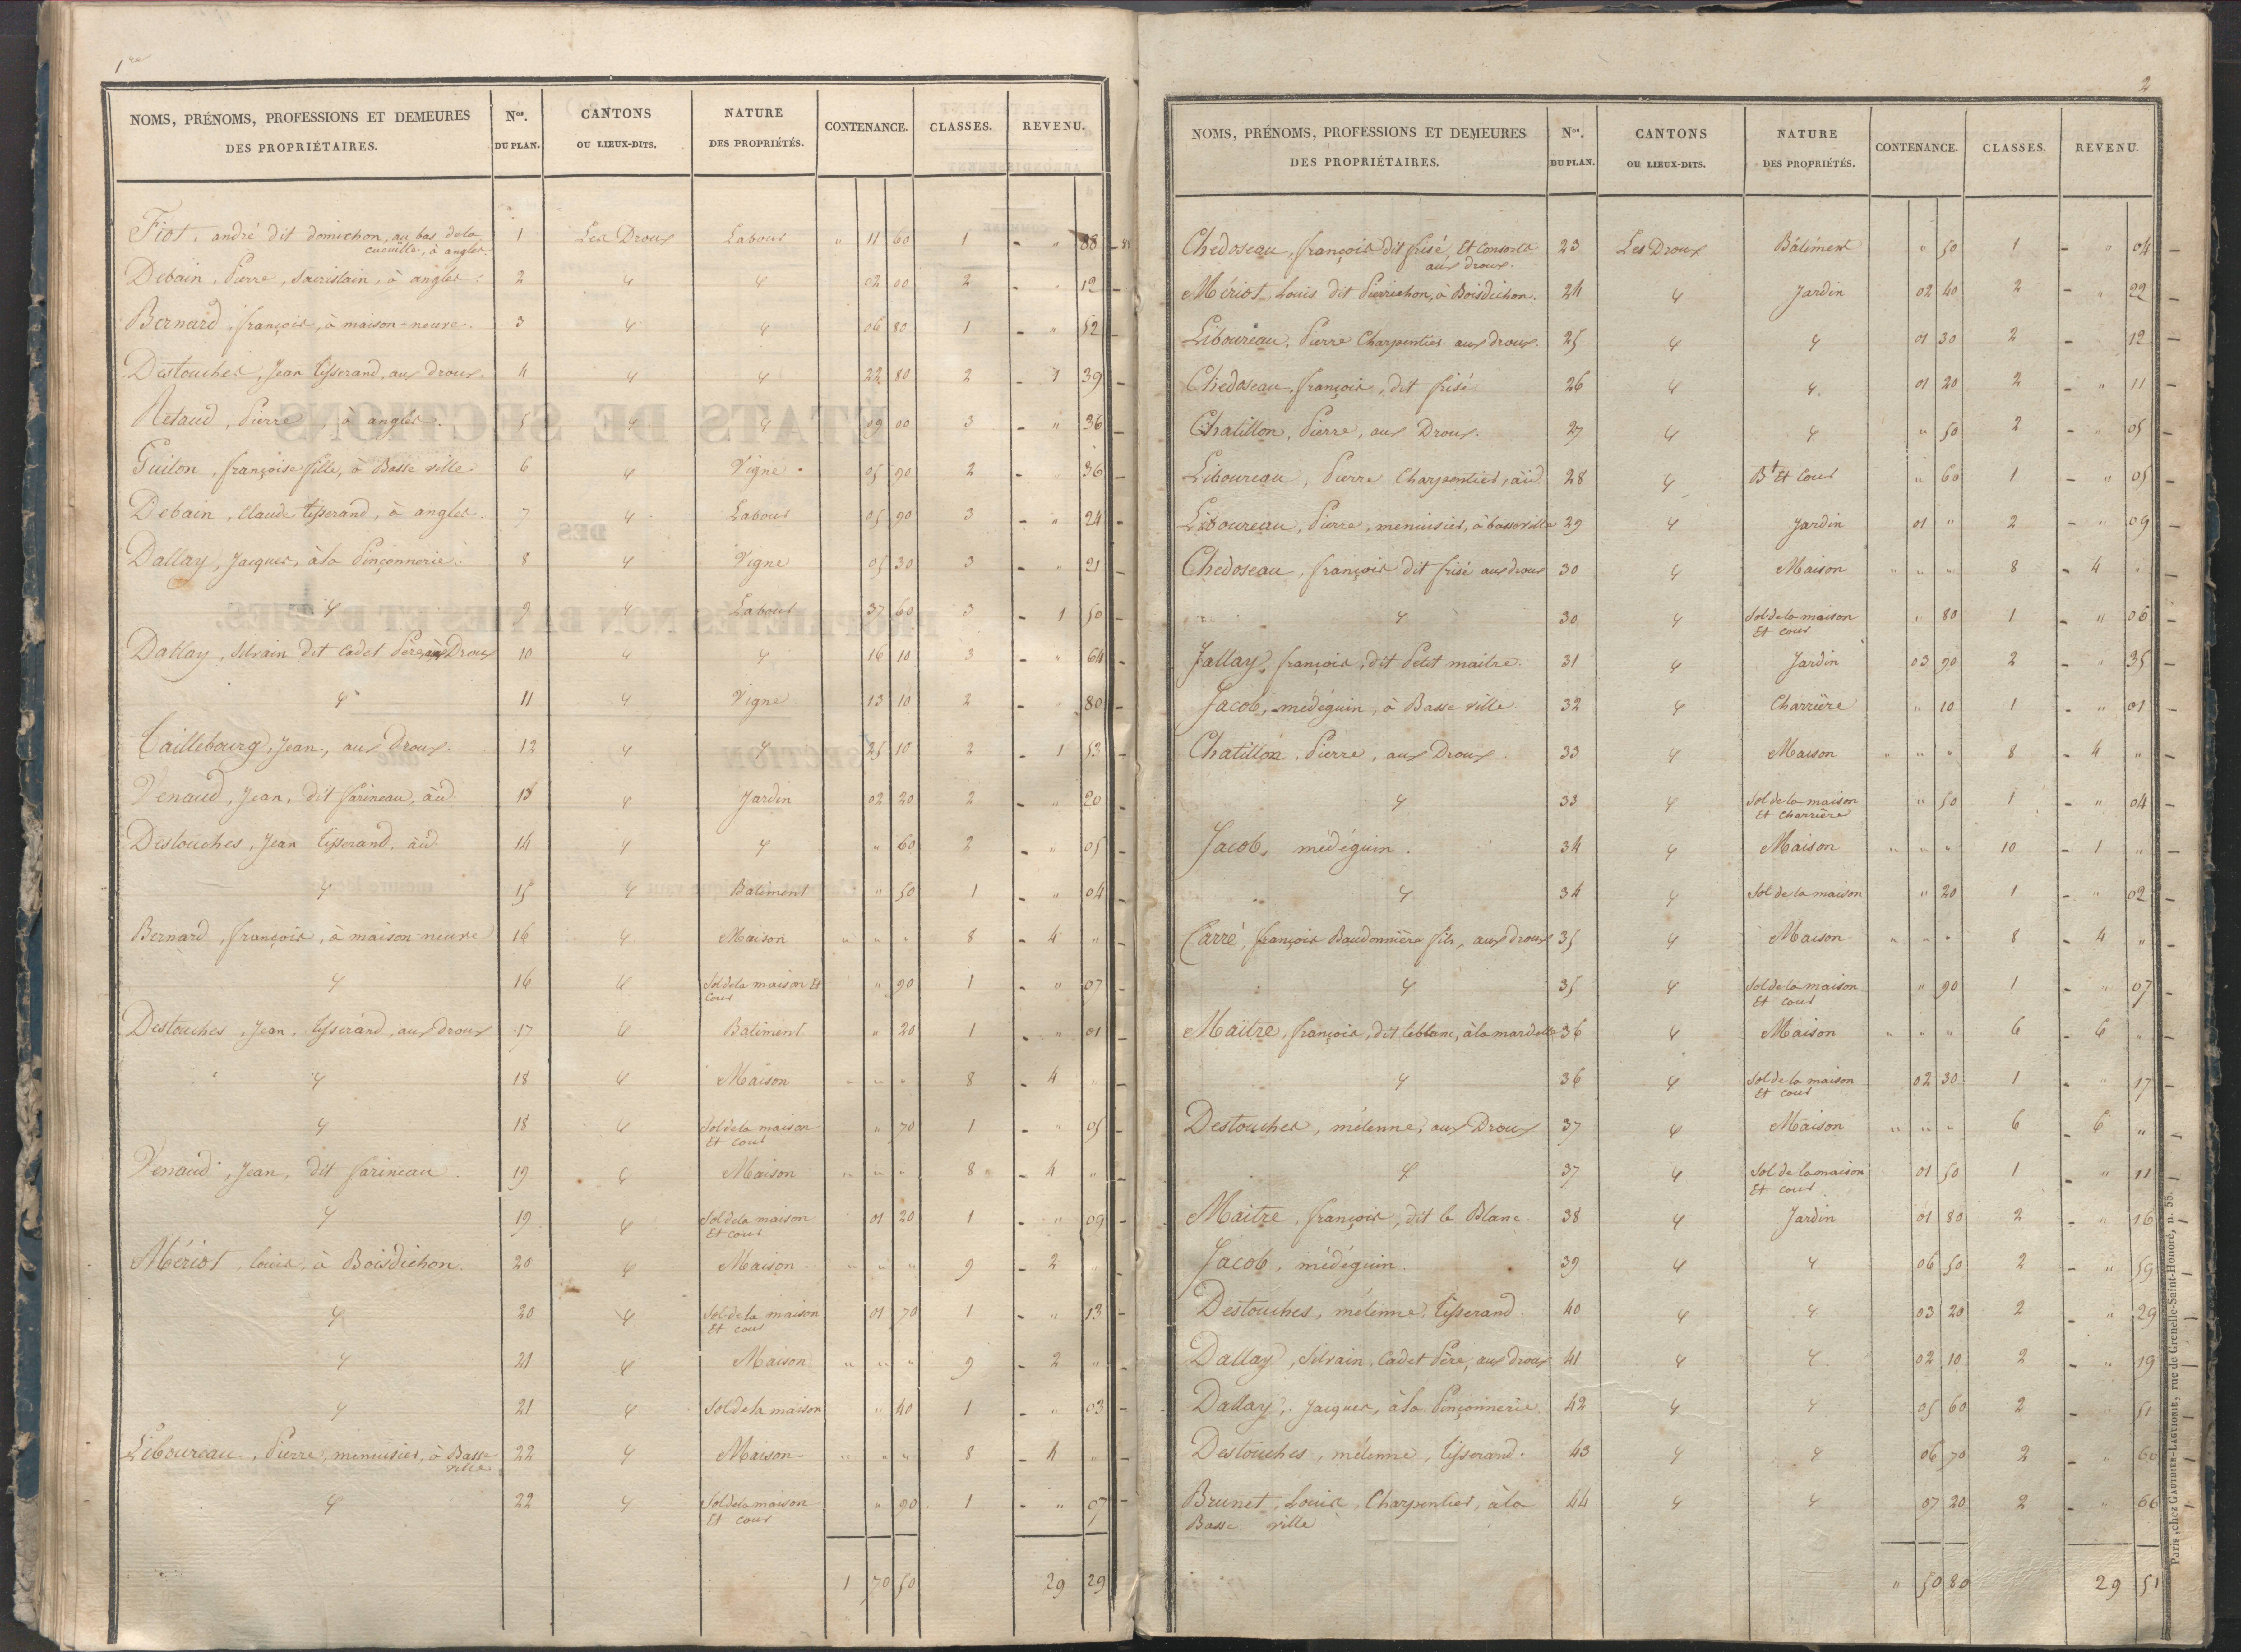 1re
NOMS, PRÉNOMS, PROFESSIONS ET DEMEURES DES PROPRIÉTAIRES. Nos. DU PLAN. CANTONS OU LIEUX-DITS. NATURE DES PROPRIÉTÉS. CONTENANCE. CLASSES. REVENU.
Fiot, andré dit domichon, au bas dela 1 Les Droux Labour " 11 60 1 - " 88 -
cueuille, à angles.
Debain, Pierre, Sacristain, à angles. 2 4 4 02 00 2 - " 12 -
Bernard, françois, à maison-neuve. 3 4 4 06 80 1 - " 52 -
Destouches, Jean tisserand, aux droux. 4 4 4 22 80 2 - 1 39 -
Retaud, Pierre, à angles. 5 4 4 09 00 3 - " 36 -
Guiton, françoise fille, à Basse ville. 6 4 Vigne 05 90 2 - " 36 -
Debain, Claude tisserand, à angles. 7 4 Labour 05 90 3 - " 24 -
Dallay, Jacques, àla Pinçonnerie. 8 4 Vigne 05 30 3 - " 21 -
4 9 4 Labour 37 60 3 - 1 50 -
Dallay, Silvain dit Cadet Père, aux Droux 10 4 4 16 10 3 - " 64 -
4 11 4 Vigne 13 10 2 - " 80 -
Taillebourg, Jean, aux Droux. 12 4 4 25 10 2 - 1 53 -
Venaud, Jean, dit farineau, àid. 13 4 Jardin 02 20 2 - " 20 -
Destouches, Jean tisserand, àid. 14 4 4 " 60 2 - " 05 -
4 15 4 Batiment " 50 1 - " 04 -
Bernard, françois, à maison-neuve 16 4 Maison " " " 8 - 4 " -
4 16 4 Sol dela maison Et " 90 1 - " 07 -
Cour
Destouches, Jean, tisserand, aux droux 17 4 Batiment " 20 1 - " 01 -
4 18 4 Maison " " " 8 - 4 " -
4 18 4 Sol dela maison " 70 1 - " 05 -
Et cour
Venaud, Jean, dit farineau 19 4 Maison " " " 8 - 4 " -
4 19 4 Sol dela maison 01 20 1 - " 09 -
Et cour
Mériot, louis, à Boisdichon. 20 4 Maison " " " 9 - 2 " -
4 20 4 Sol de la maison 01 70 1 - " 13 -
Et cour
4 21 4 Maison " " " 9 - 2 " -
4 21 4 Sol dela maison " 40 1 - " 03 -
Liboureau, Pierre, menuisier, à Basse 22 4 Maison " " " 8 - 4 " -
ville
4 22 4 Sol dela maison " 90 1 - " 07 -
Et cour
1 70 50 29 29
2
NOMS, PRÉNOMS, PROFESSIONS ET DEMEURES DES PROPRIÉTAIRES. Nos. DU PLAN. CANTONS OU LIEUX-DITS. NATURE DES PROPRIÉTÉS. CONTENANCE. CLASSES. REVENU.
Chedoseau, françois dit frisé, Et Consorts 23 Les Droux Bâtiment " 50 1 - " 04 -
aux droux.
Mériot, Louis dit Pierrichon, à Boisdichon. 24 4 Jardin 02 40 2 - " 22 -
Liboureau, Pierre Charpentier aux droux. 25 4 4 01 30 2 - 12 -
Chedoseau, françois, dit frisé. 26 4 4 01 20 2 - " 11 -
Chatillon, Pierre, aux Droux. 27 4 4 " 50 2 - " 05 -
Liboureau, Pierre Charpentier, àid 28 4 Bt Et Cour " 60 1 - " 05 -
Liboureau, Pierre, menuisier, à basse ville 29 4 Jardin 01 " 2 - " 09 -
Chedoseau, françois dit frisé aux droux 30 4 Maison " " " 8 - 4 " -
4 30 4 Sol dela maison " 80 1 - " 06 -
Et cour
Jallay, françois, dit Petit maitre. 31 4 Jardin 03 90 2 - " 35 -
Jacob, médéguin, à Basse ville. 32 4 Charrière " 10 1 - " 01 -
Chatillon, Pierre, aux Droux. 33 4 Maison " " " 8 - 4 " -
4 33 4 Sol de la maison " 50 1 - " 04 -
Et charrière
Jacob, médéguin. 34 4 Maison " " " 10 - 1 " -
4 34 4 Sol de la maison " 20 1 - " 02 -
Carré, françois Baudonnière fils, aux droux 35 4 Maison " " " 8 - 4 " -
4 35 4 Sol de la maison " 90 1 - " 07 -
Et cour
Maitre, françois, dit leblanc, àla mardelle 36 4 Maison " " " 6 - 6 " -
4 36 4 Sol de la maison 02 30 1 - " 17 -
Et cour
Destouches, mélenne, aux Droux 37 4 Maison " " " 6 - 6 " -
4 37 4 Sol de la maison 01 50 1 - " 11 -
Et cour
Maitre, françois, dit le Blanc 38 4 Jardin 01 80 2 - " 16 -
Jacob, médéguin. 39 4 4 06 50 2 - " 59 -
Destouches, mélenne, tisserand. 40 4 4 03 20 2 - " 29 -
Dallay, Silvain, Cadet Père, aux droux 41 4 4 02 10 2 - " 19 -
Dallay, Jacques, àla Pinçonnerie. 42 4 4 05 60 2 - " 51 -
Destouches, mélenne, tisserand. 43 4 4 06 70 2 - " 60 -
Brunet, Louis, Charpentier, àla 44 4 4 07 20 2 - " 66 -
Basse ville
" 50 80 29 51
Paris, chez GAUTHIER-LAGUIONIE, rue de Grenelle-Saint-Honoré, n. 55.